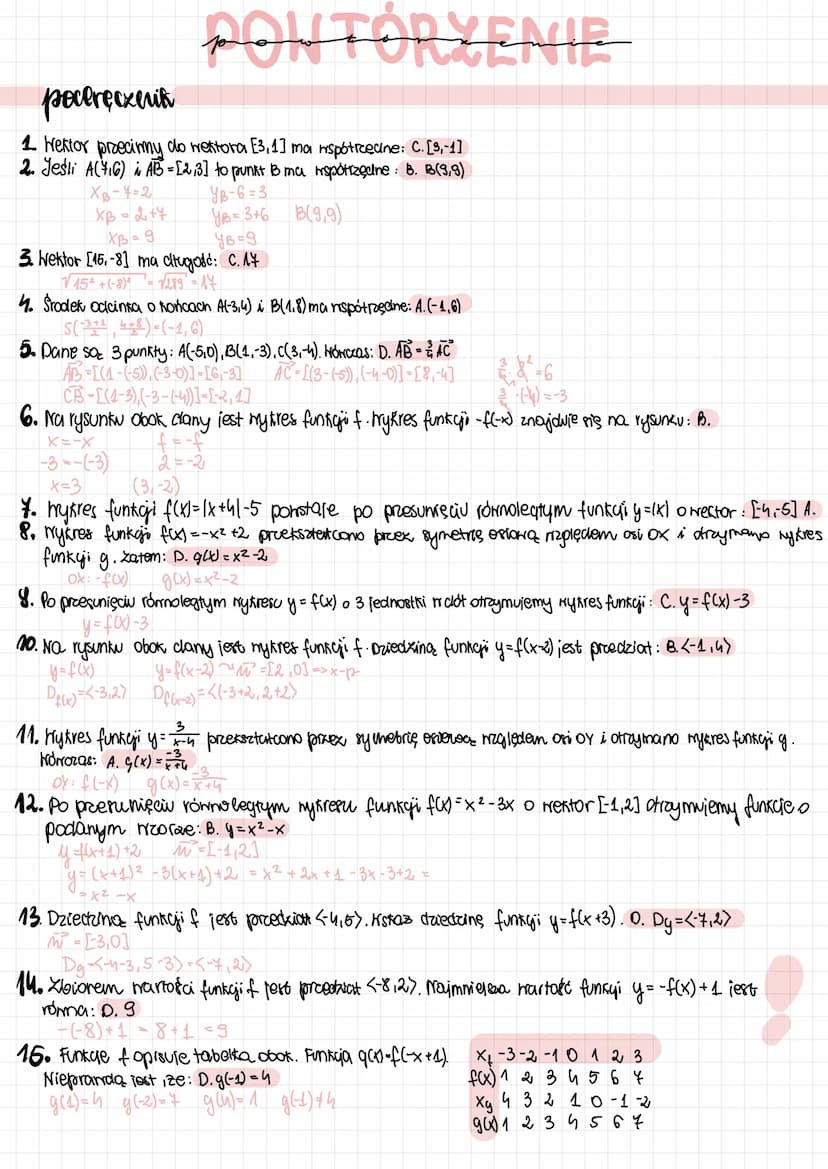 POWTÓRZENIE
powtórzenie
podręcznik
1. Wektor przeciwny do wektora [3,1] ma współrzędne: C. [3,-1]
2. Jeśli A(7,6) i AB = [2,3] to punkt B ma współrzędne: B. B(9,9)
xB - 7 = 2 yB - 6 = 3
xB = 2+7 yB = 3+6 B(9,9)
xB = 9 yB = 9
3. Wektor [15,-8] ma długość: C. 17
√15² + (-8)² = √289 = 17
4. Środek odcinka o końcach A(-3,4) i B(1,8) ma współrzędne: A. (-1,6)
S(-3+1/2, 4+8/2) = (-1,6)
5. Dane są 3 punkty: A(-5,0), B(1,-3), C(3,-4). Wówczas: D. AB = 3/4 AC
AB = [(1-(-5)), (-3-0)] = [6,-3] AC = [(3-(-5)), (-4-0)] = [8,-4] 3/4 · 8 = 6
CB = [(1-3), (-3-(-4))] = [-2,1] 3/4 · (-4) = -3
6. Na rysunku obok dany jest wykres funkcji f. Wykres funkcji -f(-x) znajduje się na rysunku: B.
x = -x f = -f
-3 = -(-3) 2 = -2
x = 3 (3,-2)
7. Wykres funkcji f(x) = |x+4| - 5 powstaje po przesunięciu równoległym funkcji y = |x| o wector: [-4,-5] A.
8. Wykres funkcji f(x) = -x² + 2 przekształcono przez symetrię osiową względem osi OX i otrzymano wykres
funkcji g. Zatem: D. g(x) = x² - 2
OX: -f(x) g(x) = x² - 2
9. Po przesunięciu równoległym wykresu y = f(x) o 3 jednostki w dół otrzymujemy wykres funkcji: C. y = f(x) - 3
y = f(x) - 3
10. Na rysunku obok dany jest wykres funkcji f. Dziedziną funkcji y = f(x-2) jest przedział: B. <-1,4)
y = f(x) y = f(x-2) ~ w = [2,0] => x-p
Df(x) = <-3,2) Df(x-2) = <(-3+2, 2+2)
11. Wykres funkcji y = 3/x-4 przekształcono przez symetrię osiową względem osi OY i otrzymano wykres funkcji g.
Wówczas: A. g(x) = -3/x+4
OY: f(-x) g(x) = -3/x+4
12. Po przesunięciu równoległym wykresu funkcji f(x) = x² - 3x o wektor [-1,2] otrzymujemy funkcję o
podanym wzorze: B. y = x² - x
y = f(x+1) + 2 w = [-1,2]
y = (x+1)² - 3(x+1) + 2 = x² + 2x + 1 - 3x - 3 + 2 =
= x² - x
13. Dziedziną funkcji f jest przedział <-4,5). Wskaż dziedzinę funkcji y = f(x+3). D. Dy = <-7,2)
w = [-3,0]
Dg = <-4-3, 5-3) = <-7,2)
14. Zbiorem wartości funkcji f jest przedział <-8,2). Największa wartość funkcji y = -f(x) + 1 jest
równa: D. 9
-(-8) + 1 = 8 + 1 = 9
!
15. Funkcję f opisuje tabelka obok. Funkcja g(x) = f(-x+1).
Nieprawdą jest, że: D. g(-1) = 4
g(1) = 4 g(-2) = 7 g(4) = 1 g(-1) ≠ 4
xf -3 -2 -1 0 1 2 3
f(x) 1 2 3 4 5 6 7
xg 4 3 2 1 0 -1 -2
g(x) 1 2 3 4 5 6 7